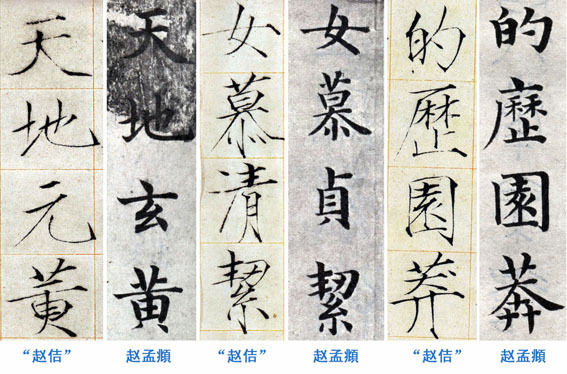 天地元黄
女慕清絜
的歴園莽
天地玄黄
女慕貞絜
的歴園莽
“赵佶” 赵孟頫 “赵佶” 赵孟頫 “赵佶” 赵孟頫